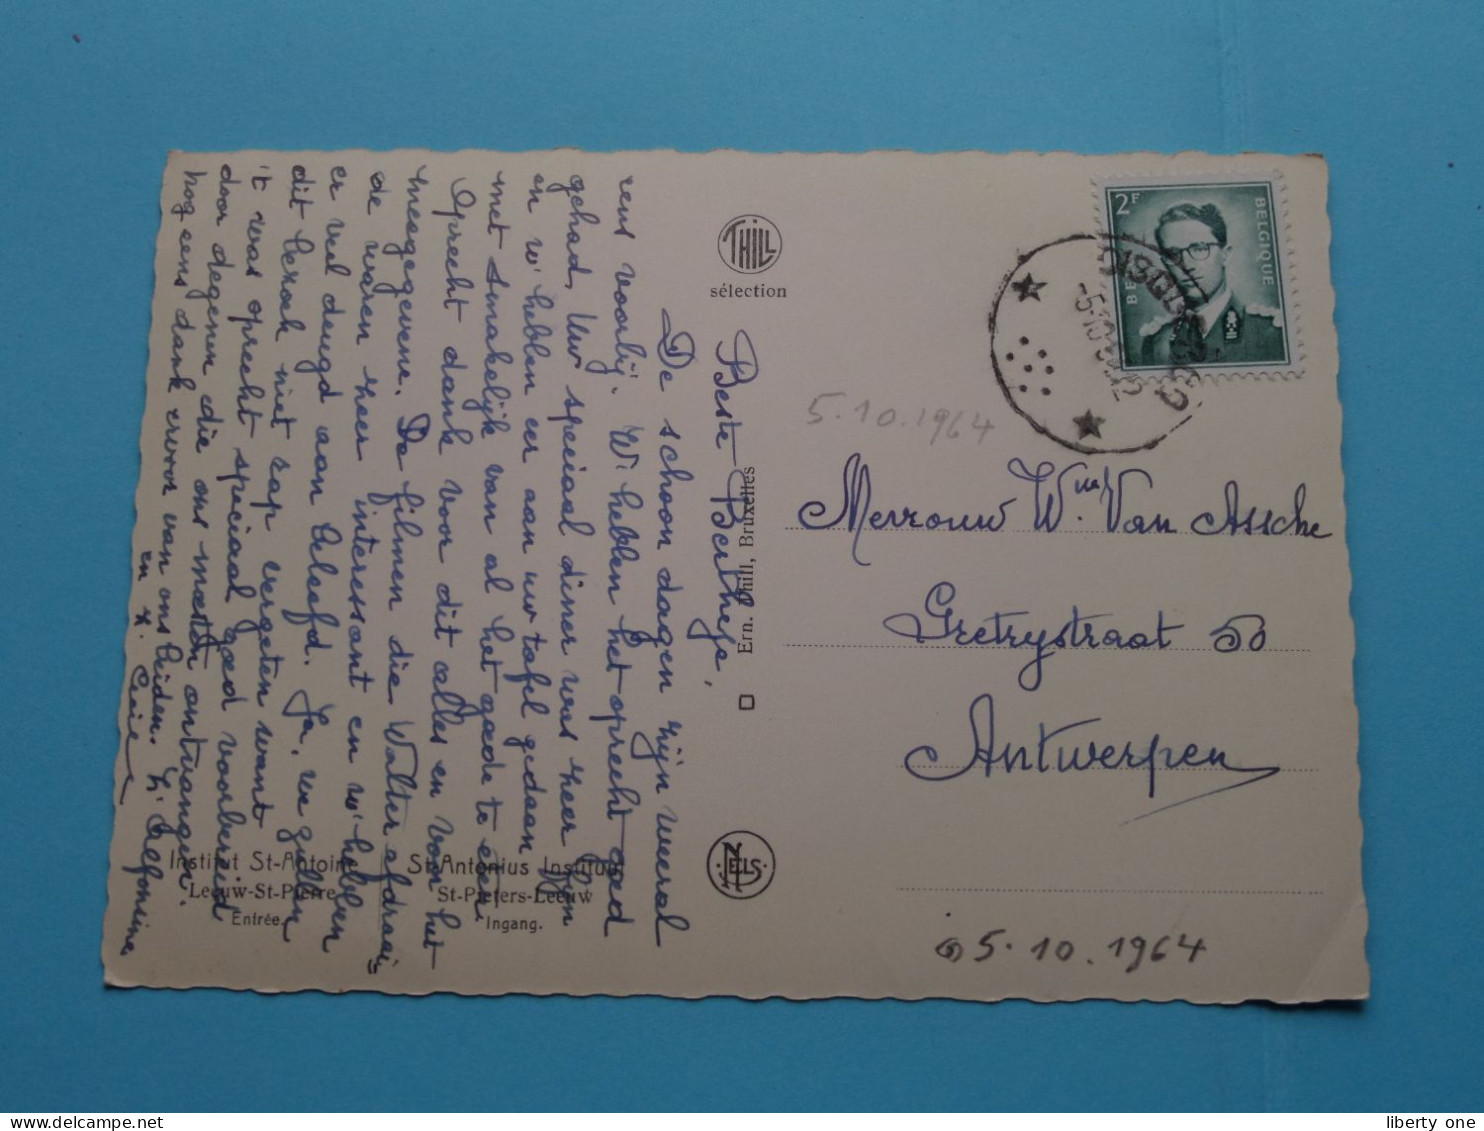 Beste Bertheje,
De schoon dagen zijn weeral
reus voorbij. W' hebben het oprecht goed
gehad, Uw speciaal diner was zeer fijn
en w' hebben eer aan uw tafel gedaan
met smakelijk van al het goede te eten
Oprecht dank voor dit alles en voor het
meegegevene. De filmen die Walter afdraaide
waren zeer interessant en w' hebben
er veel deugd aan beleefd. Ja, we zullen
dit bezoek niet rap vergeten want
't was oprecht speciaal goed voorbereid
door degenen die ons mœsten ontvangen.
nog eens dank ervoor van ons beiden. Z' Alfonsine
en Z.
THILL
sélection
Ern. Thill, Bruxelles
NELS
Institut St-Antoine
Leeuw-St-Pierre
Entrée.
St-Antonius Instituut
St-Pieters-Leeuw
Ingang.
2F
BELGIQUE
-5-10
5.10.1964
Mevrouw Wwe Van Assche
Gretrystraat 50
Antwerpen
5.10.1964
liberty one